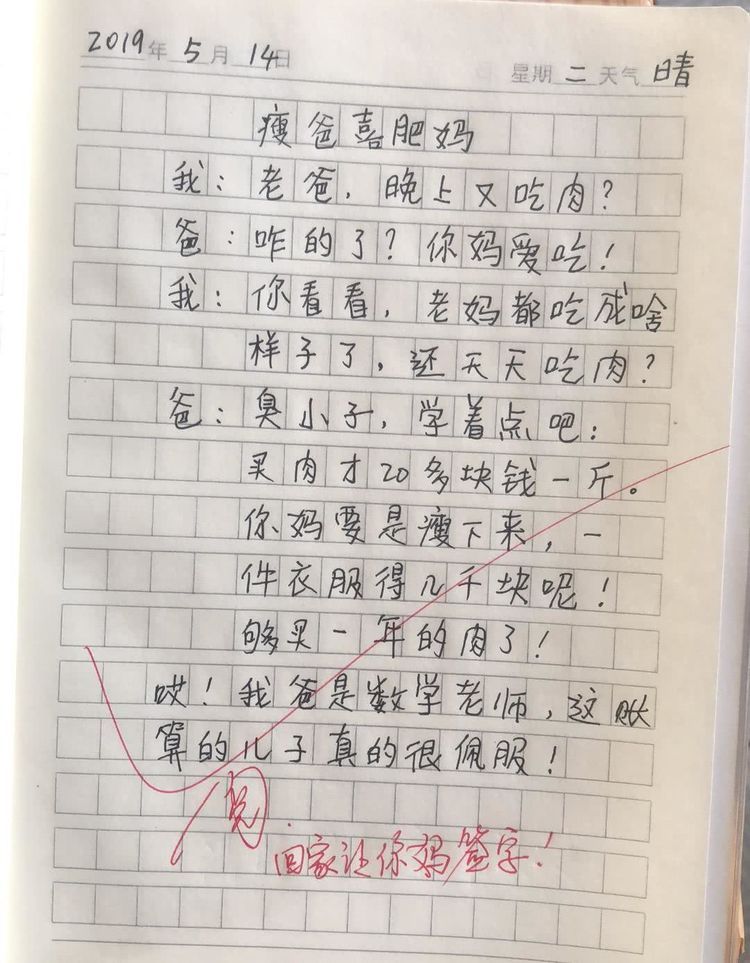 2019年 5月 14日 星期 二 天气 晴
瘦爸喜肥妈
我：老爸，晚上又吃肉？
爸：咋的了？你妈爱吃！
我：你看看，老妈都吃成啥
样子了，还天天吃肉？
爸：臭小子，学着点吧：
买肉才20多块钱一斤。
你妈要是瘦下来，一
件衣服得几千块呢！
够买一年的肉了！
哎！我爸是数学老师，这账
算的儿子真的很佩服！
阅.
回家让你妈签字！